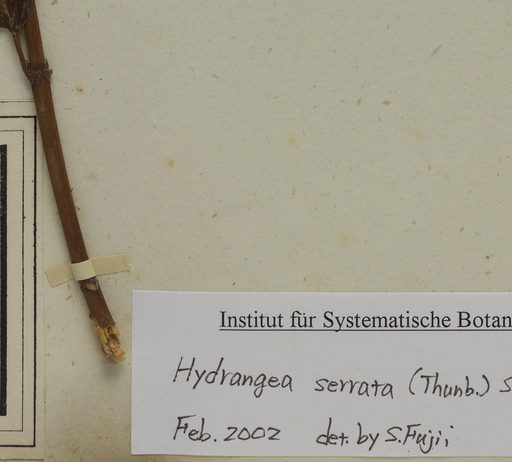 Institut für Systematische Botan
Hydrangea serrata (Thunb.) S
Feb. 2002 det. by S. Fujii